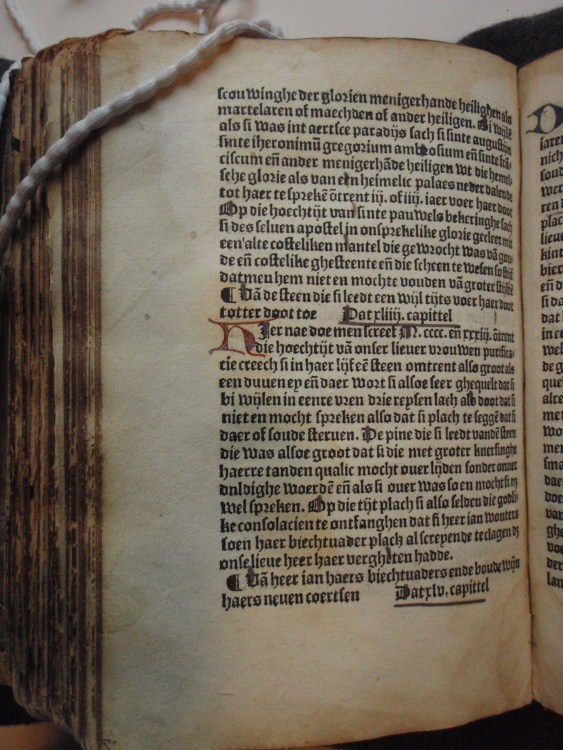 scouwinghe der glorien menigerhande heilighen als
martelaren of maechden of ander heiligen. Bi wilē
als si was int aertsce paradijs sach si sinte augustijn
sinte iheronimū gregorium ambrosium eñ sinte frā
ciscum eñ ander menigerhāde heiligen wt die hemel
sche glorie als van een heimelic palaes neder dalende
tot haer te sprekē ōtrent iij. of iiij. iaer voer haer doot
Op die hoechtijt van sinte pauwels bekeringhe sach
si des seluen apostel in onsprekelike glorie gecleet mit
een alte costeliken mantel die gewrocht was vā gou
de eñ costelike ghesteente eñ die scheen te wesen so stijf
datmen hem niet en mochte vouden vā groter stijfhē
¶ Vā de steen die si leedt een wijl tijts voer haer doot
totter doot toe Dat xliiij. capittel
HIer nae doe men screef M. cccc. eñ xxxiij. ōtrent
die hoechtijt vā onser lieuer vrouwen purifica
cie creech si in haer lijf eē steen omtrent also groot als
een duuen ey eñ daer wort si alsoe seer ghequelt dat si
bi wijlen in eenre vren drie reysen lach als doot dat si
niet en mocht spreken also dat si plach te seggē dat si
daer of soude steruen. De pine die si leedt vandē steen
die was alsoe groot dat si die met groter knersinghe
haerre tanden qualic mocht ouer lijden sonder onuer
duldighe woerdē eñ als si ouer was so en mocht si nz
wel spreken. Op die tijt plach si also selden die godli
ke consolacien te ontfanghen dat si heer ian wouters
soen haer biechtuader plach al screpende te clagen dz
onse lieue heer haer vergheten hadde.
¶ Vā heer ian haers biechtuaders ende boudewijn
haers neuen coertsen Dat xlv. capittel